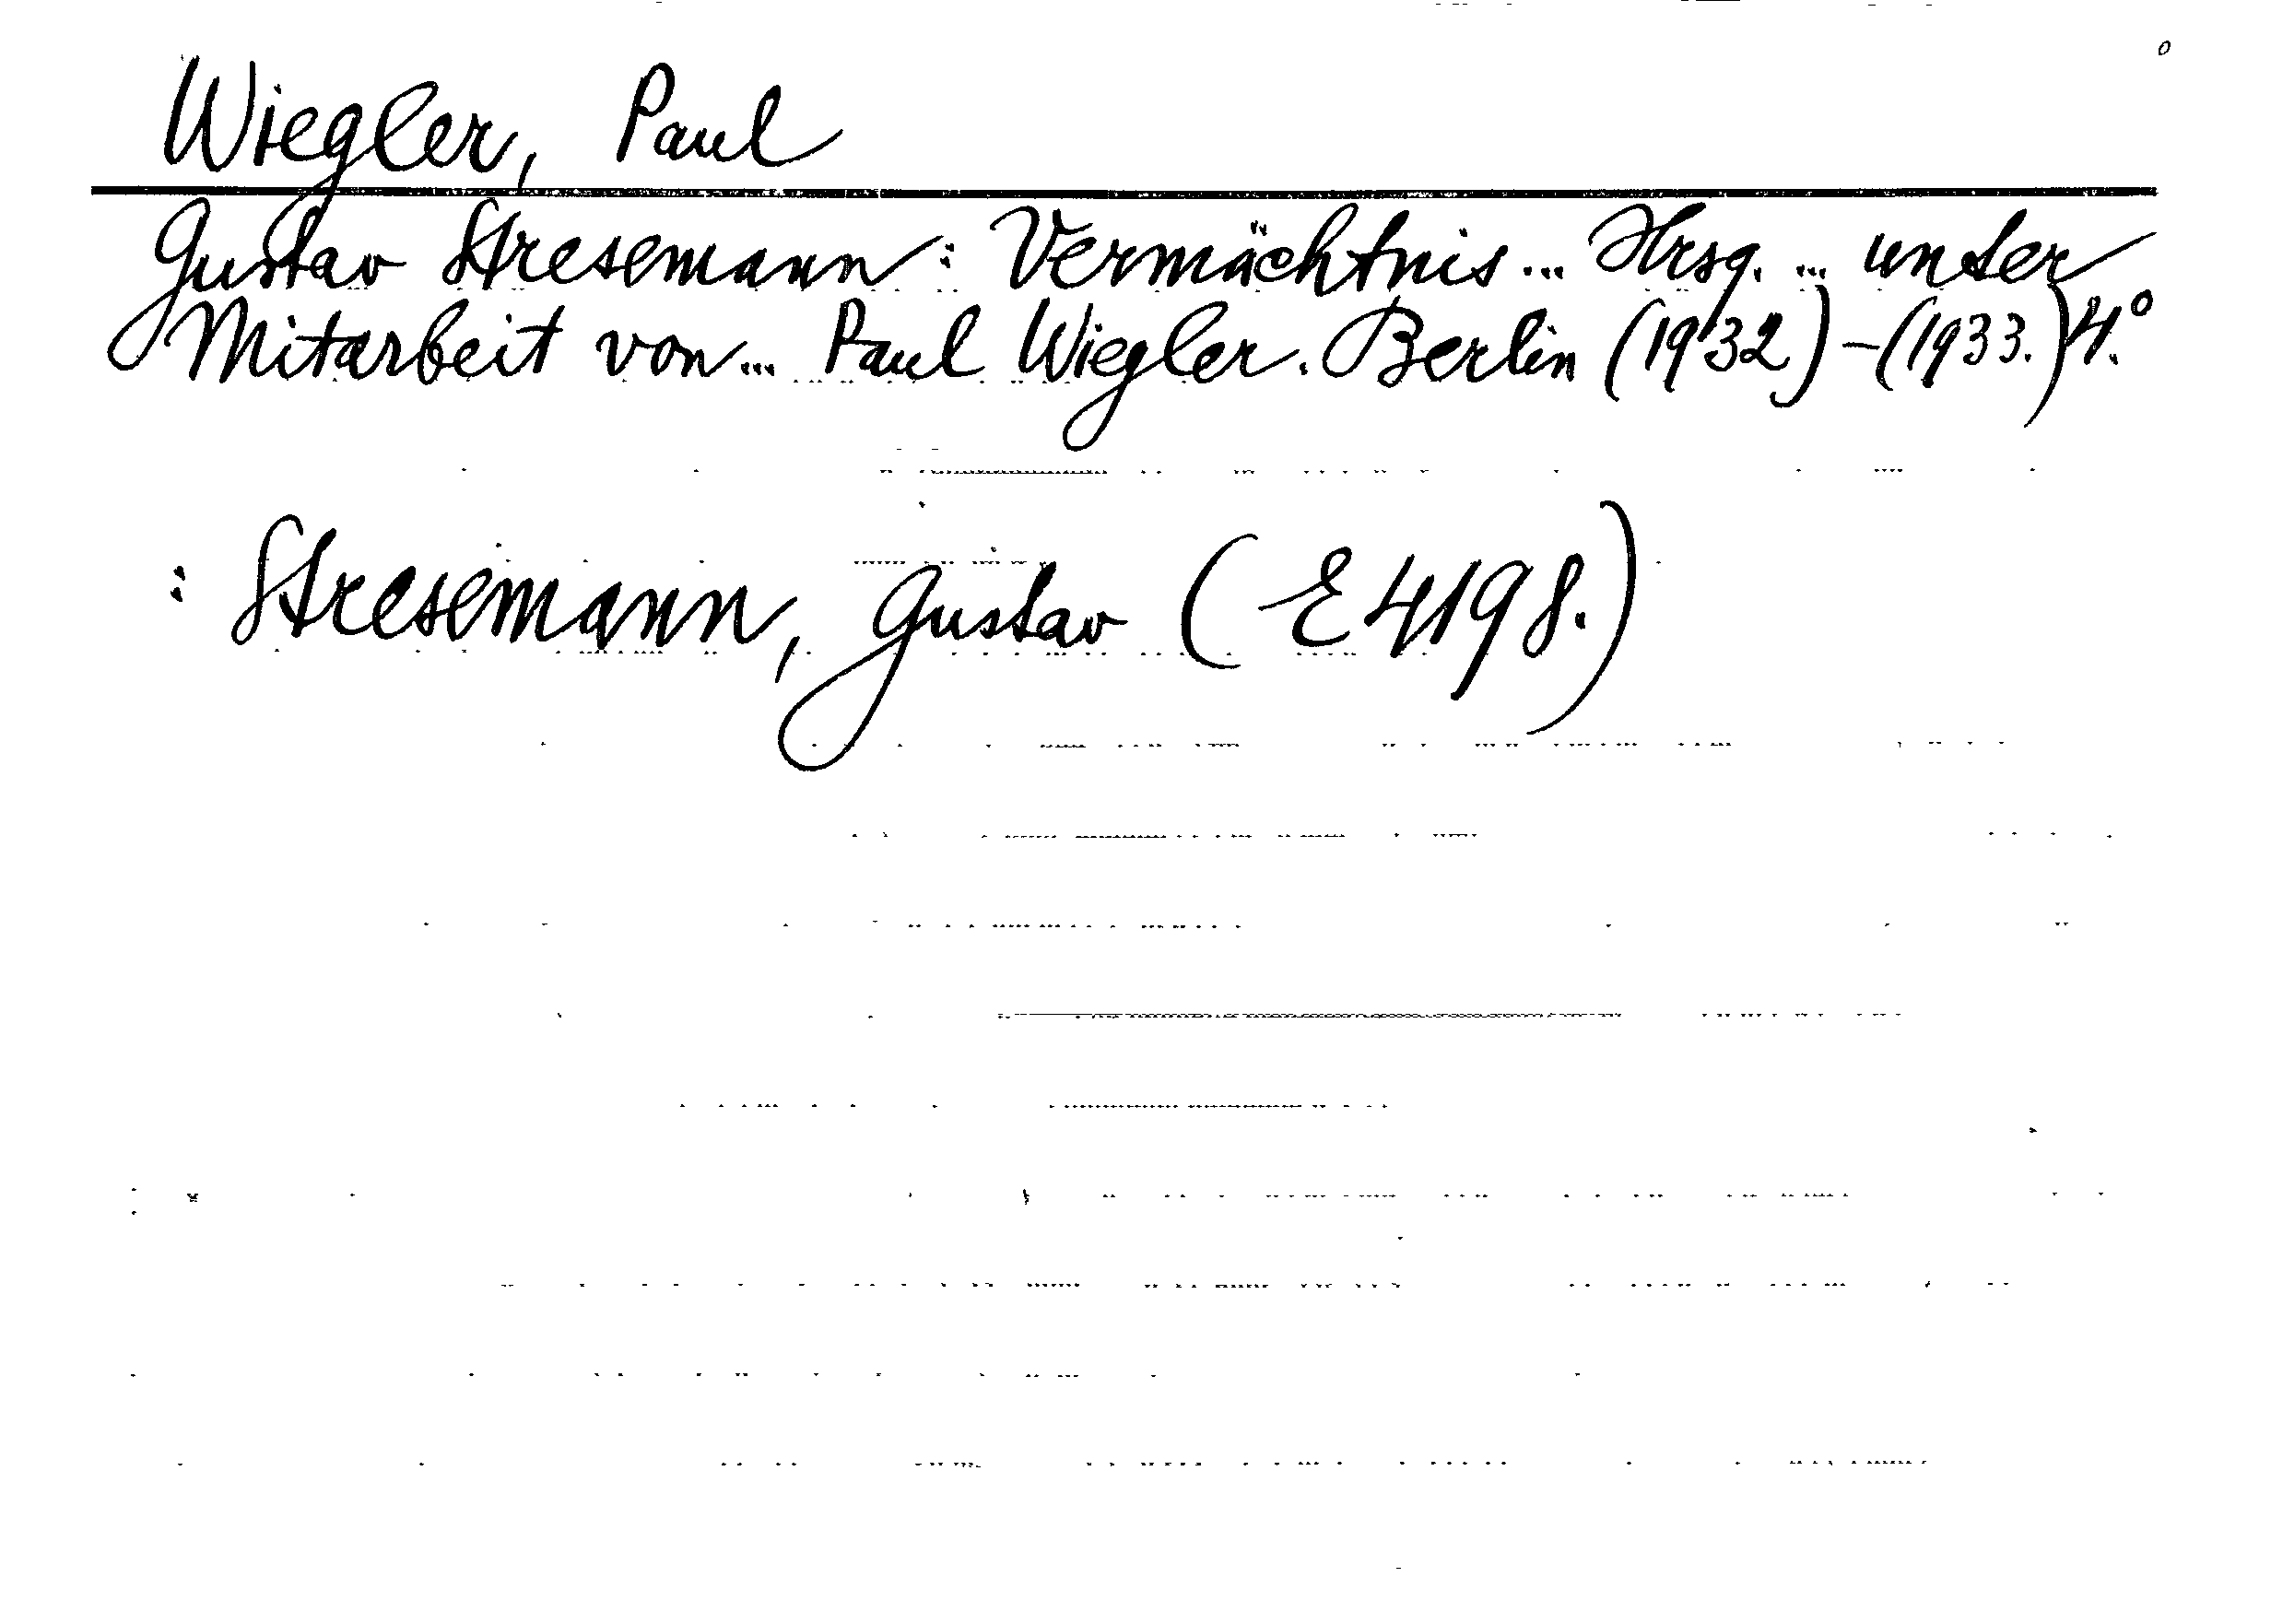 Wiegler, Paul
Gustav Stresemann: Vermächtnis... Hrsg. ... unter
Mitarbeit von... Paul Wiegler. Berlin (1932)-(1933.) 4.°
: Stresemann, Gustav (E 4198.)